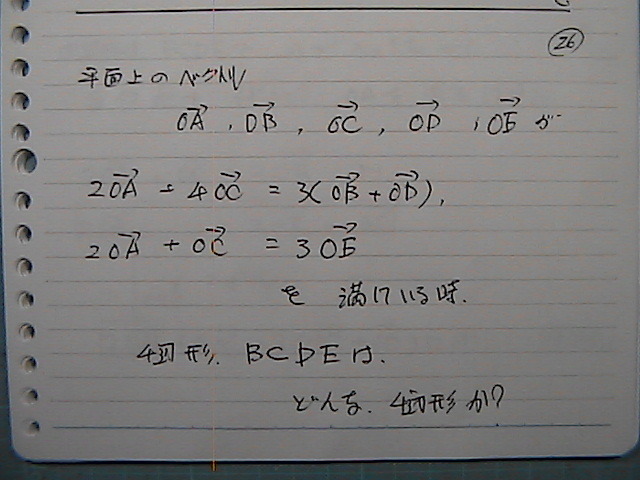 26
平面上のベクトル
OA→, OB→, OC→, OD→, OE→ が
2OA→ + 4OC→ = 3(OB→ + OD→),
2OA→ + OC→ = 3OE→
を 満たしている時.
4角形. BCDE は.
どんな. 4角形か?